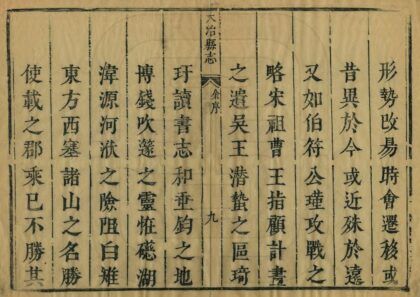 形勢改易時會遷移或
昔異於今或近殊於遠
又如伯符公瑾攻戰之
略宋祖曹王指顧計畫
大冶縣志
余序
九
之遺吳王潛蟄之區琦
玗讀書志和垂釣之地
博錢吹篴之靈恠礠湖
湋源河洑之險阻白雉
東方西塞諸山之名勝
使載之郡乘已不勝其